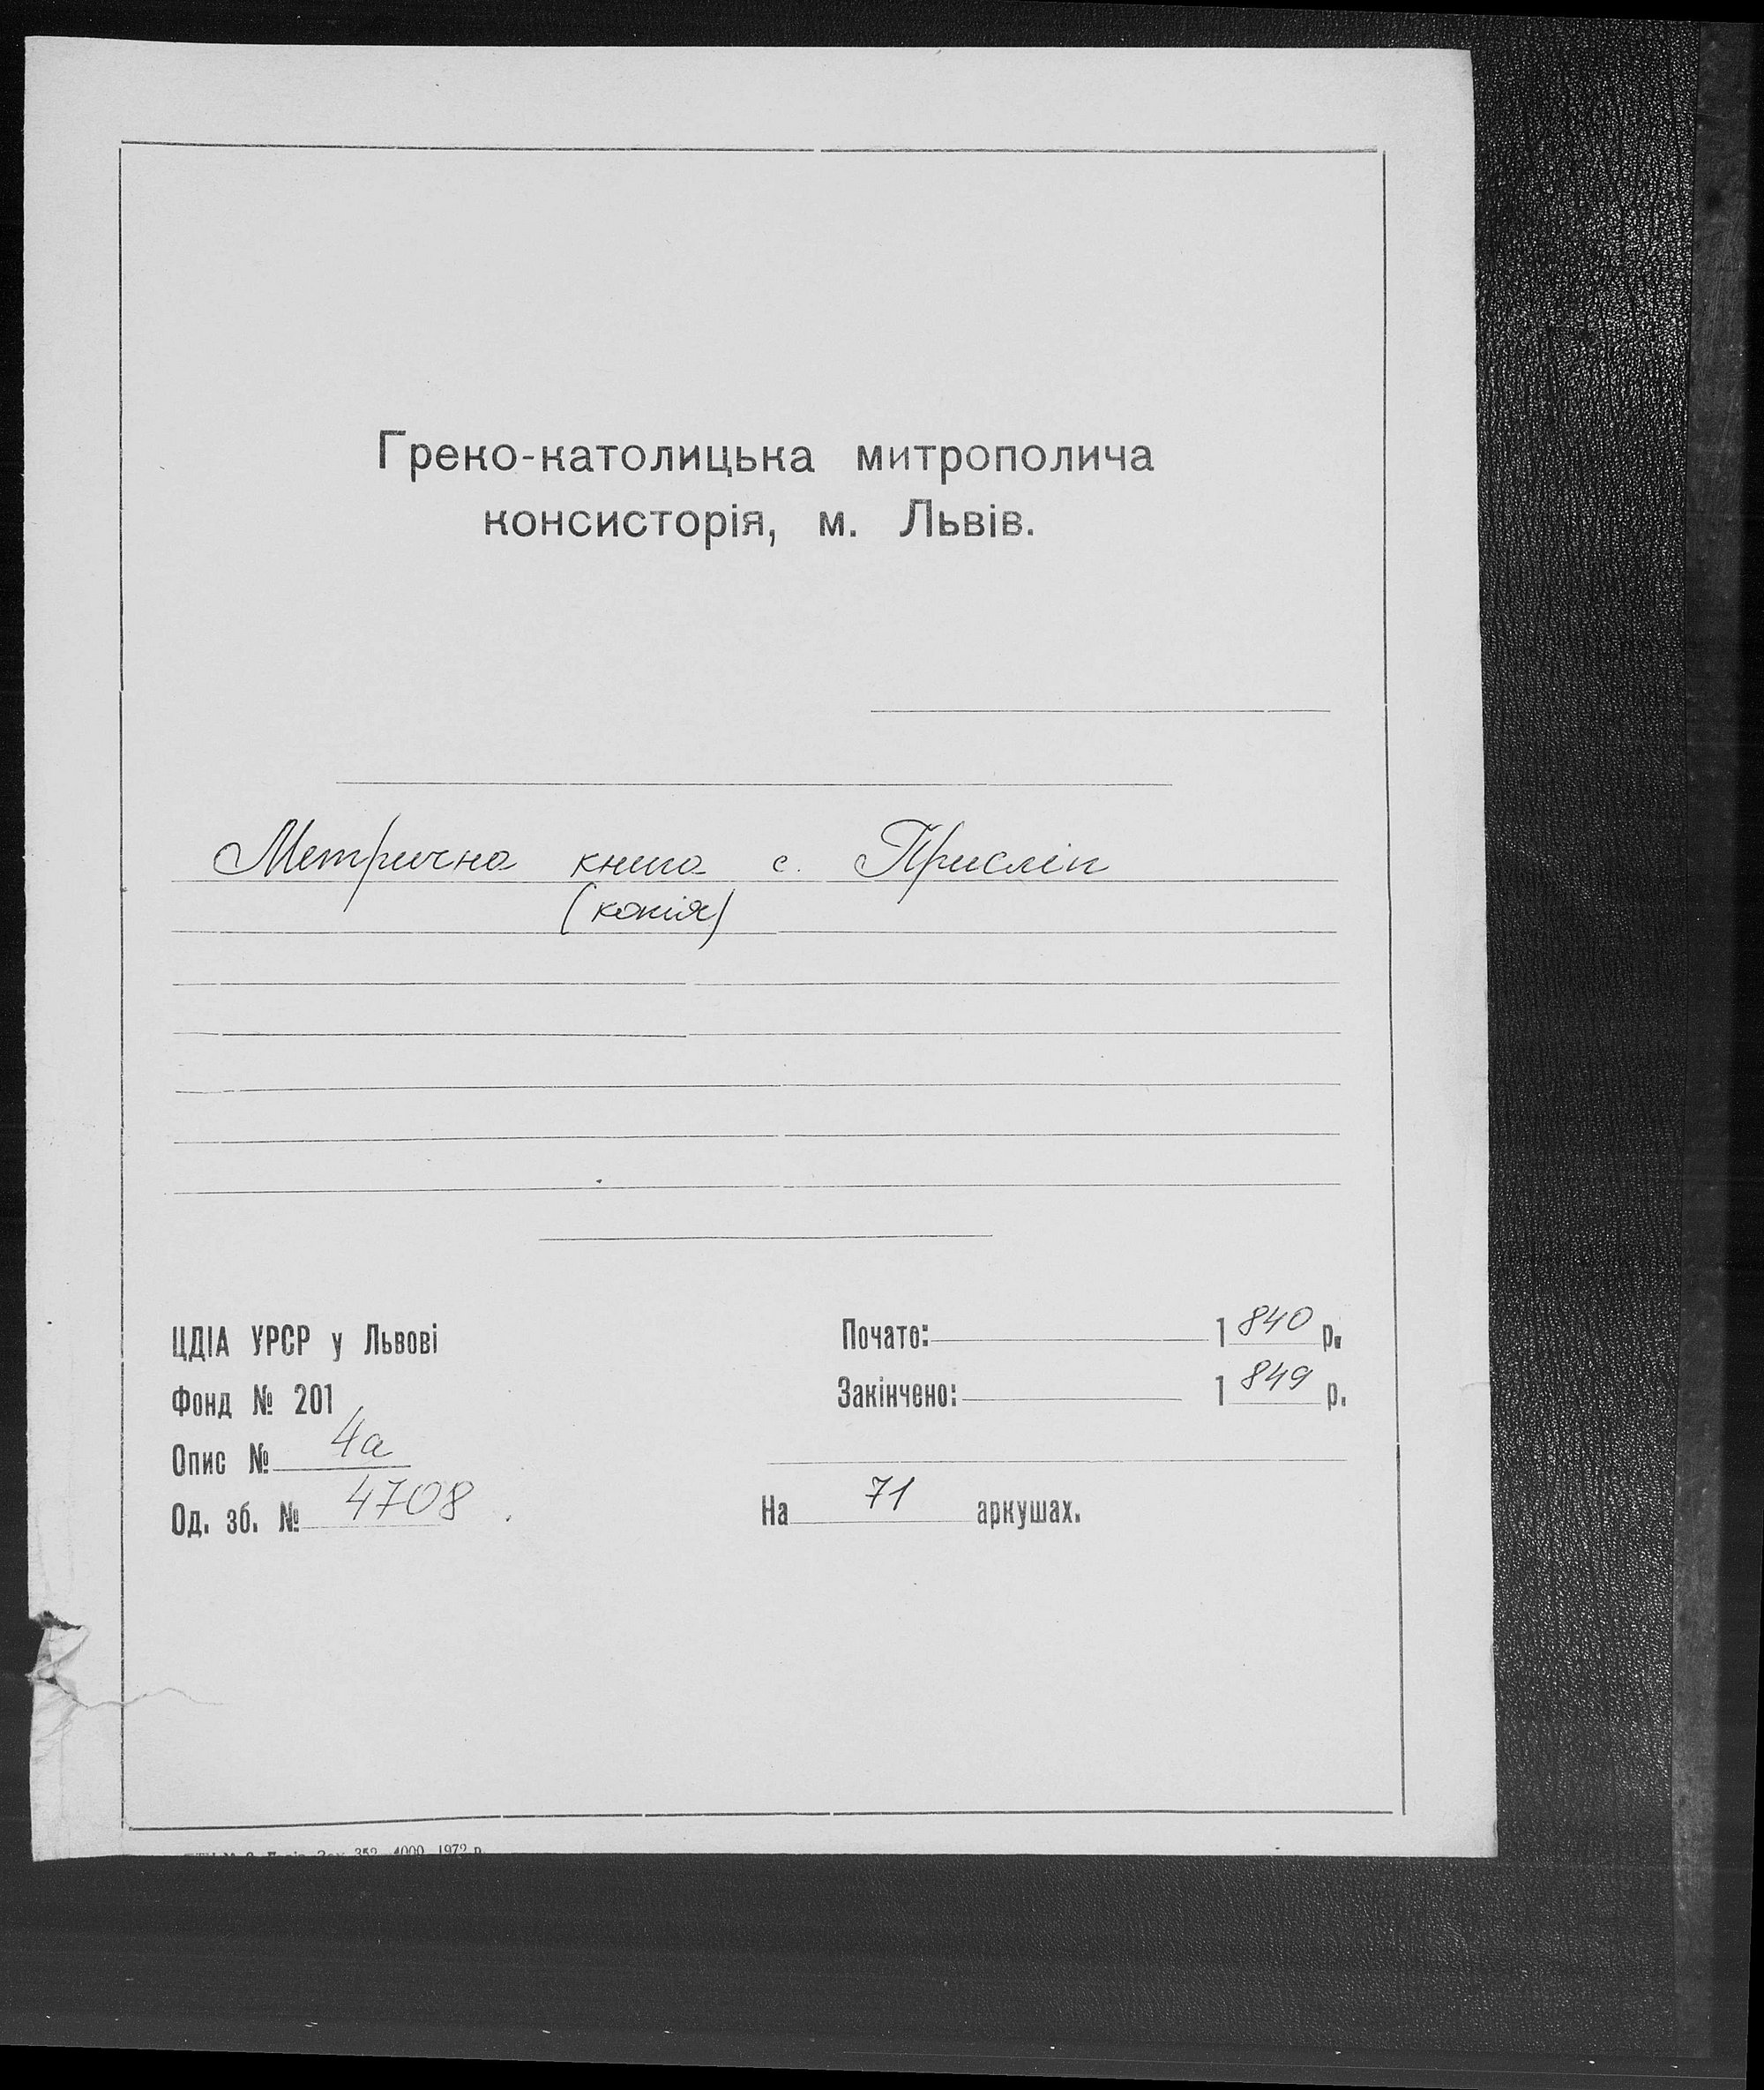 Греко-католицька митрополича
консисторія, м. Львів.
Метрична книга с. Прислін
(копія)
ЦДІА УРСР у Львові
Почато: 1840 р.
Фонд № 201
Закінчено: 1849 р.
Опис № 4а
Од. зб. № 4708
На 71 аркушах.
352 4000 1972 р.